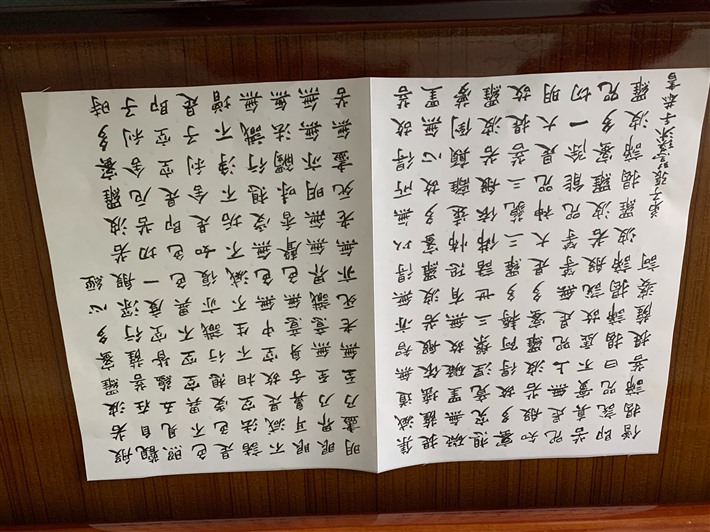 般若波羅蜜多心經
觀自在菩薩行深般若波羅蜜多時
照見五蘊皆空度一切苦厄舍利子
色不異空空不異色色即是空空即
是色受想行識亦復如是舍利子是
諸法空相不生不滅不垢不淨不增
不減是故空中無色無受想行識無
眼耳鼻舌身意無色聲香味觸法無
眼界乃至無意識界無無明亦無無
明盡乃至無老死亦無老死盡無苦
集滅道無智亦無得以無所得故菩
提薩埵依般若波羅蜜多故心無罣
礙無罣礙故無有恐怖遠離顛倒夢
想究竟涅槃三世諸佛依般若波羅
蜜多故得阿耨多羅三藐三菩提故
知般若波羅蜜多是大神咒是大明
咒是無上咒是無等等咒能除一切
苦真實不虛故說般若波羅蜜多咒
即說咒曰揭諦揭諦波羅揭諦波羅
僧揭諦菩提薩婆訶
弟子張沐手恭書